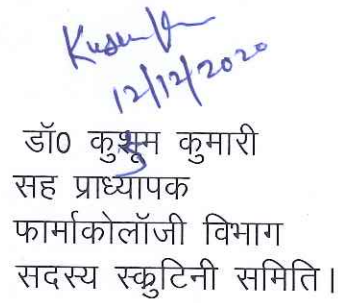 Kusum
12/12/2020
डॉ0 कुसुम कुमारी
सह प्राध्यापक
फार्माकोलॉजी विभाग
सदस्य स्क्रुटिनी समिति।